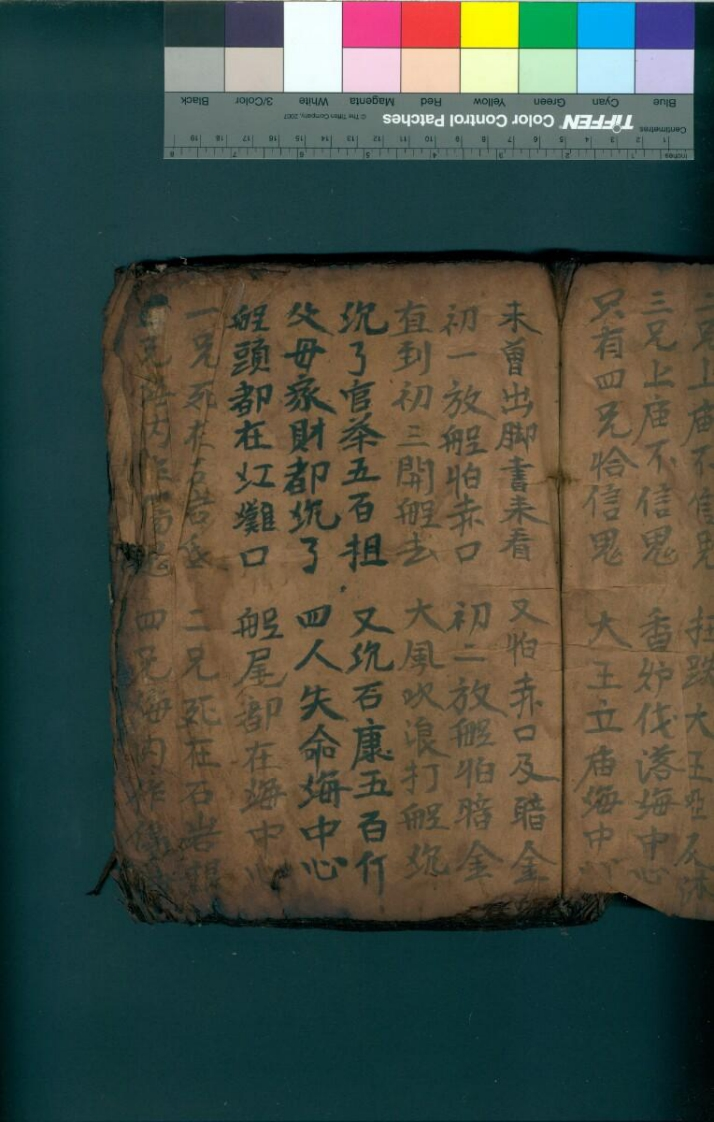 Blue Cyan Green Yellow Red Magenta White 3/Color Black
TIFFEN Color Control Patches
© The Tiffen Company, 2007
Centimetres
Inches
兄上庙不信鬼 大王
三兄上庙不信鬼 香炉伐落海中心
只有四兄恰信鬼 大王立庙海中心
未曾出脚書来看 又怕赤口及暗金
初一放船怕赤口 初二放船怕暗金
直到初三開船去 大風吹浪打船沉
沉了官茶五百担 又沉石康五百斤
父母家財都沉了 四人失命海中心
船頭都在江灘口 船尾都在海中心
一兄死在 二兄死在石岩
内 四兄海内